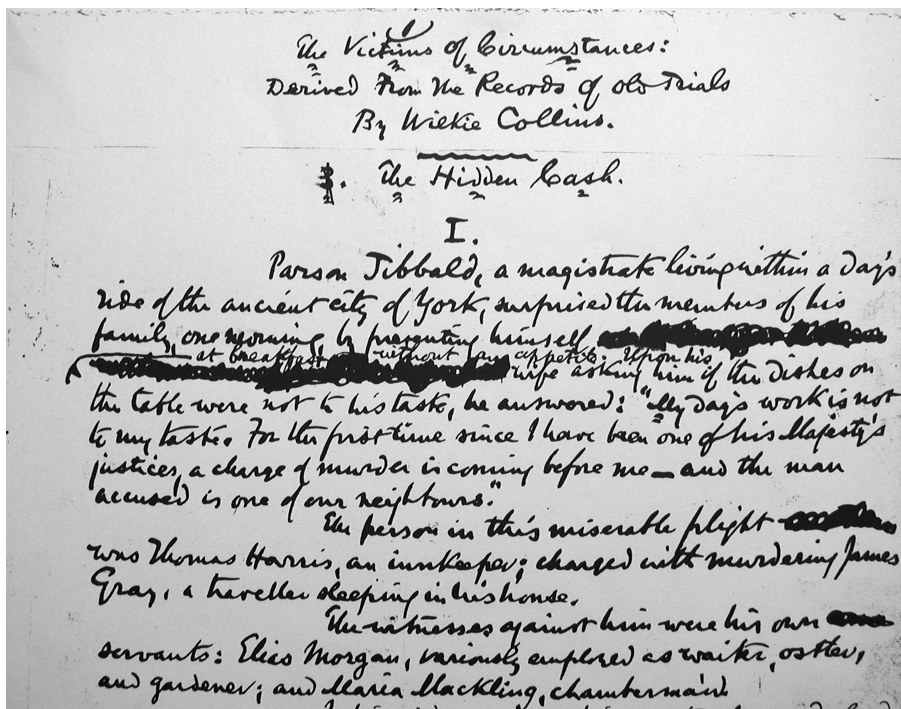 The Victims of Circumstances:
Derived From The Records of Old Trials
By Wilkie Collins.
The Hidden Cash.
I.
Parson Tibbald, a magistrate living within a day's
ride of the ancient city of York, surprised the members of his
family, one morning, by presenting himself
at breakfast without an appetite. Upon his
wife asking him if the dishes on
the table were not to his taste, he answered: "My day's work is not
to my taste. For the first time since I have been one of his Majesty's
justices, a charge of murder is coming before me — and the man
accused is one of our neighbours."
The person in this miserable plight
was Thomas Harris, an innkeeper; charged with murdering James
Gray, a traveller sleeping in his house.
The witnesses against him were his own
servants: Elias Morgan, variously employed as waiter, ostler,
and gardener; and Maria Mackling, chambermaid.